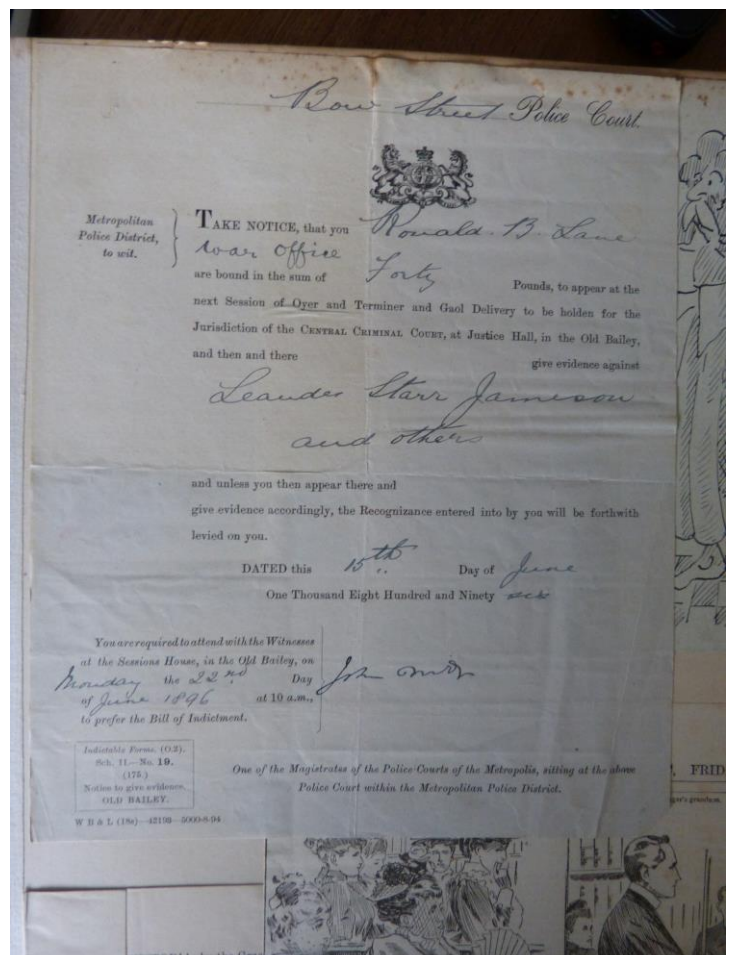 Bow Street Police Court.
Metropolitan
Police District,
to wit.
TAKE NOTICE, that you Ronald. B. Lane
War Office
are bound in the sum of Forty Pounds, to appear at the
next Session of Oyer and Terminer and Gaol Delivery to be holden for the
Jurisdiction of the CENTRAL CRIMINAL COURT, at Justice Hall, in the Old Bailey,
and then and there give evidence against
Leander Starr Jameson
and others
and unless you then appear there and
give evidence accordingly, the Recognizance entered into by you will be forthwith
levied on you.
DATED this 15th Day of June
One Thousand Eight Hundred and Ninety six
You are required to attend with the Witnesses
at the Sessions House, in the Old Bailey, on
Monday the 22nd Day
of June 1896 at 10 a.m.,
to prefer the Bill of Indictment.
John
Indictable Forms. (O.2).
Sch. 11.—No. 19.
(175.)
Notice to give evidence,
OLD BAILEY.
One of the Magistrates of the Police Courts of the Metropolis, sitting at the above
Police Court within the Metropolitan Police District.
W B & L (18s)—42193—5000-8-94
FRID